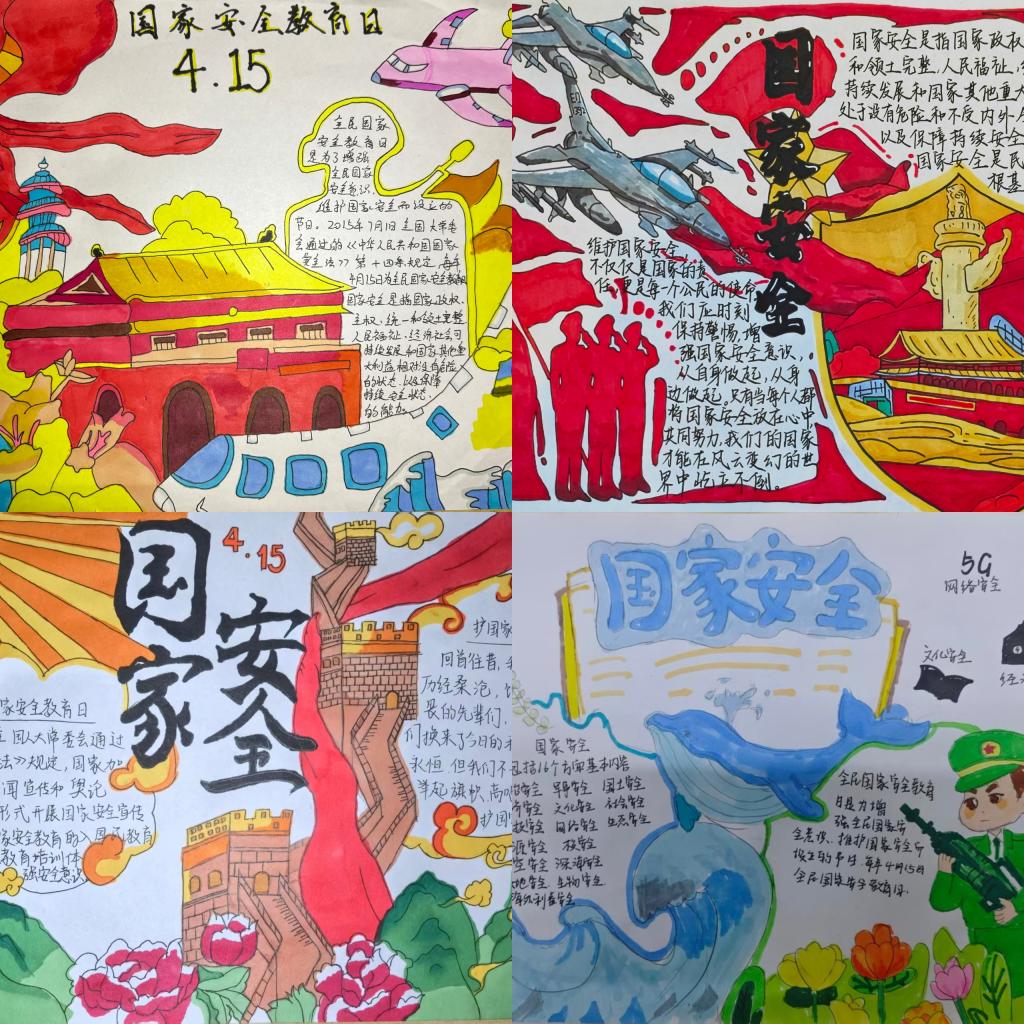 国家安全教育日
4.15
全民国家
安全教育日
是为了增强
全民国家
安全意识
维护国家安全而设立的
节日。2015年7月1日全国人大常委
会通过的《中华人民共和国国家
安全法》第十四条规定,每年
4月15日为全民国家安全教育日
国家安全是指国家政权、
主权、统一和领土完整
人民福祉、经济社会可
持续发展和国家其他重
大利益相对没有危险
的状态,以及保障
持续安全状态
的能力
国家安全
国家安全是指国家政权
和领土完整、人民福祉、
持续发展和国家其他重大
处于没有危险和不受内外
以及保障持续安全
国家安全是民
根基
维护国家安全,
不仅仅是国家的责
任,更是每一个公民的使命
我们应时刻
保持警惕,增
强国家安全意识,
从自身做起,从身
边做起,只有当每个人都
将国家安全放在心中
共同努力,我们的国家
才能在风云变幻的世
界中屹立不倒。
国家
安全
4.15
家安全教育日
国人大常委会通过
法》规定,国家加
闻宣传和舆论
形式开展国家安全宣传
家安全教育纳入国民教育
教育培训体
强安全意识
护国家
回首往昔,我
历经沧桑,
畏的先辈们,
们换来了今日的
永恒 但我们不
举起旗帜,高
护国
国家安全
5G
网络安全
文化安全
经
国家安全
包括16个方面基本内容
治安全 军事安全 国土安全
济安全 文化安全 社会安全
技安全 网络安全 生态安全
源安全 核安全
空安全 深海安全
地安全 生物安全
海外利益安全
全民国家安全教育
日是为增
强全民国家安
全意识、维护国家安全而
设立的节日 每年4月15日
全民国家安全教育日